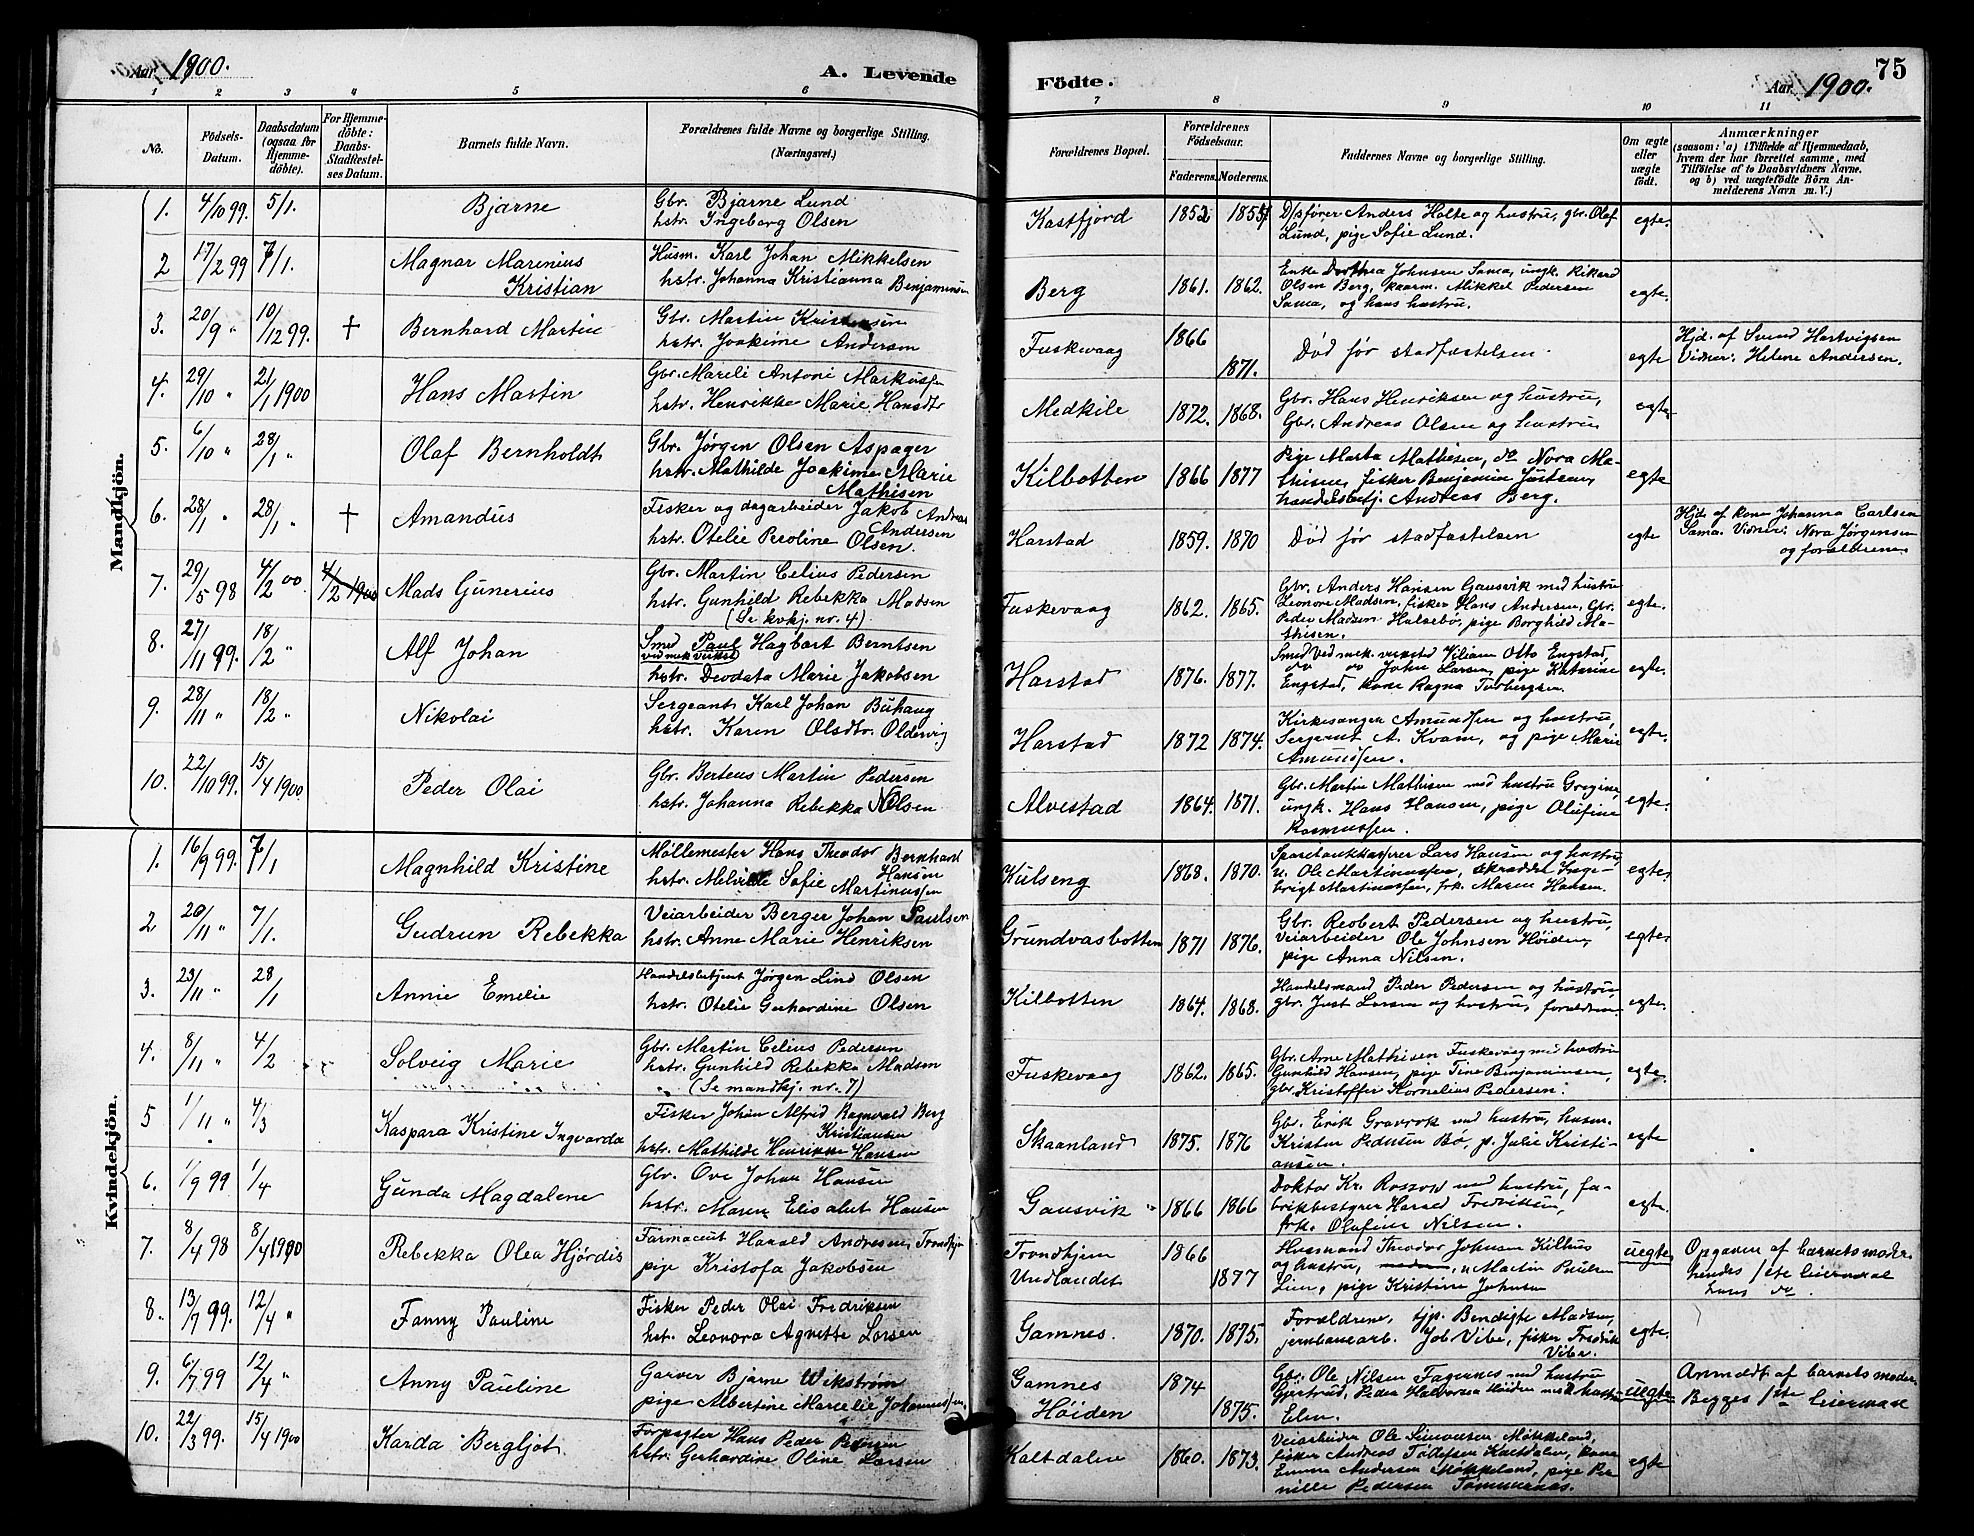 Aar 1900.
A. Levende
Födte.
Aar 1900.
75
1 2 3 4 5 6 7 8 9 10 11
No.
Födsels-
Datum.
Daabsdatum
(ogsaa for
Hjemme-
döbte).
For Hjemme-
döbte:
Daabs-
Stadfæstel-
ses Datum.
Barnets fulde Navn.
Forældrenes fulde Navne og borgerlige Stilling.
(Næringsvei.)
Forældrenes Bopæl.
Forældrenes
Födselsaar.
Faderens. Moderens.
Faddernes Navne og borgerlige Stilling.
Om ægte
eller
uægte
födt.
Anmærkninger
(saasom: a) i Tilfælde af Hjemmedaab,
hvem der har forrettet samme, med
Tilföielse af to Daabsvidners Navne,
og b) ved uægtefödte Börn An-
melderens Navn m. V.)
Mandkjön.
1. 4/10 99. 5/1. Bjarne
Gbr. Bjarne Lund
hstr. Ingeborg Olsen
Kastfjord 1852
Anders Holte og hustru, gbr. Olaf
Lund, pige Sofie Lund.
egte.
2 17/2 99 7/1. Magnar Marenius
Kristian
Husm. Karl Johan Mikkelsen
hstr. Johanna Kristianna Benjaminsen
Berg 1861. 1862.
Enke Dorthea Johnsen Sama, ungk. Rikard
Olsen Berg, kaarm. Mikkel Pedersen
Sama, og hans hustru.
egte.
3. 20/9 " 10/12 99. † Bernhard Martin
Gbr. Martin Kristensen
hstr. Joakime Andersen
Fuskevaag 1866 1871.
Död för stadfæstelsen.
egte
Hjd. af Svend Hartvigsen
Vidner: Helene Andersen.
4. 29/10 " 21/1 1900 Hans Martin
Gbr. Mareli Antoni Markussen
hstr. Henrikke Marie Hansdtr
Medkile 1872. 1868.
Gbr. Hans Henriksen og hustru,
Gbr. Andreas Olsen og hustru
egte
5. 6/10 " 28/1 " Olaf Bernholdt
Gbr. Jørgen Olsen Aspager
hstr. Mathilde Joakime Marie
Mathisen
Kilbotten 1866 1877
Pige Marta Mathisen, do Nora Ma-
thisen, fisker Benjamin Justsen,
handelsbetj. Andreas Berg.
egte
6. 28/1 " 28/1 " † Amandus
Fisker og dagarbeider Jakob Andreas
Andersen
hstr. Otelie Peroline Olsen.
Harstad 1859. 1870
Död för stadfæstelsen
egte
Hjd. af kone Johanna Carlsen
Sama. Vidner: Nora Jørgensen
og forældrene.
7. 29/5 98 4/2 00 4/2 1900 Mads Gunerius
Gbr. Martin Celius Pedersen
hstr. Gunhild Rebekka Madsen
(Se kvkj. nr. 4)
Fuskevaag 1862. 1865.
Gbr. Anders Hansen Gausvik med hustru
Leonore Madsen, fisker Hans Andersen, Gbr.
Peder Madsen Halsebø, pige Borghild Ma-
thisen.
egte.
8. 27/11 99. 18/2 " Alf Johan
Smed Paul Hagbart Berntsen
ved mek. verksted
hstr. Deodata Marie Jakobsen
Harstad 1876. 1877.
Smed ved mek. verksted Viliam Otto Engstad,
do do John Larsen, pige Katarine
Engstad, kone Ragna
egte.
9. 28/11 " 18/2 " Nikolai
Sergeant Karl Johan Buhaug
hstr. Karen Olsdtr. Oldervig
Harstad 1872 1874.
Kirkesanger Amundsen og hustru,
Sergeant A. Kvam, og pige Marie
Amundsen.
egte.
10. 22/10 99. 15/4 1900. Peder Olai
Gbr. Berteus Martin Pedersen
hstr. Johanna Rebekka Nilsen
Alvestad 1864. 1871.
Gbr. Martin Mathisen med hustru Gregine,
ungk. Hans Hansen, pige Olufine
Rasmussen.
egte.
Kvindekjön.
1. 16/9 99. 7/1 Magnhild Kristine
Møllemester Hans Theodor Bernhard
Hansen
hstr. Sofie Martinussen
Kulseng 1868. 1870.
Sparebankkasserer Lars Hansen og hustru,
u. Ole Martinussen, skrædder Inge-
brigt Martinussen, frk. Maren Hansen.
egte.
2 20/11 " 7/1. Gudrun Rebekka
Veiarbeider Berger Johan Paulsen
hstr. Anne Marie Henriksen
Grundvasbotten 1871 1876.
Gbr. Reobert Pedersen og hustru,
veiarbeider Ole Johnsen Høiden,
pige Anna Nilsen.
egte.
3. 23/11 " 28/1 Annie Emelie
Handelsbetjent Jørgen Lind Olsen
hstr. Otelie Gerhardine Olsen
Kilbotten 1864. 1868.
Handelsmand Peder Pedersen og hustru,
gbr. Just Larsen og hustru, forældrene
egte.
4. 8/11 " 4/2 Solveig Marie
Gbr. Martin Celius Pedersen
hstr. Gunhild Rebekka Madsen
" (Se mandkj. nr. 7)
Fuskevaag 1862. 1865.
Gbr. Arne Mathisen Fuskevaag med hustru
Gunhild Hansen, pige Tine Benjaminsen,
gbr. Kristoffer Kornelius Pedersen.
egte.
5 1/11 " 4/3 Kaspara Kristine Ingvarda
Fisker Johan Alfred Ragnvald Berg
Kristiansen
hstr. Mathilde Henrikke Hansen
Skaanland 1875. 1876
Gbr. Erik Gravrok med hustru, husm.
Kristen Pedersen Bø, p. Julie Kristi-
ansen.
egte
6. 1/9 99 1/4 Gunda Magdalene
Gbr. Ove Johan Hansen
hstr. Maren Elisabet Hansen
Gausvik 1866 1866
Doktor Kr. med hustru, fa-
brikbestyrer Harald Fredriksen,
frk. Olufine Nilsen.
egte.
7. 8/4 98 8/4 1900 Rebekka Olea Hjørdis
Farmaceut Harald Andresen, Trondhjem
pige Kristofa Jakobsen
Trondhjem 1866
Undlandet 1877
Husmand Theodor Johnsen Kilhus
og hustru, Martin Paulsen
Lien, pige Kristine Johnsen
uegte.
Opgaven af barnets moder.
hendes 1ste leiermaal
hans do.
8. 13/7 99. 12/4 " Fanny Pauline
Fisker Peder Olai Fredriksen
hst. Leonora Agnette Larsen
Gamnes. 1870. 1875.
Forældrene, tjp. Bendigte Madsen,
jernbanearb. Job Vibe, fisker Fredrik
Vibe.
egte.
9. 6/7 99 12/4 " Anny Pauline
Garver Bjarne Wikstrøm
pige Albertine Marcelie Johannessen.
Gamnes 1874
Høiden 1875.
Gbr. Ole Nilsen Fagernes med hustru
Gjertrud, Peder Halvorsen Høiden med hustru
Elen.
uegte
Anmeldt af barnets moder.
Begges 1ste leiermaal
10. 22/3 99. 15/4 1900 Karda Bergljot
Forpagter Hans Peder Pedersen
hstr. Gerhardine Oline Larsen
Kaltdalen 1860. 1873.
Veiarbeider Ole Simonsen Møkkeland,
fisker Andreas Tødefsen Kaltdalen, kone
Emma Andersen Møkkeland, pige Per-
nille Pedersen Tømmernæs.
egte